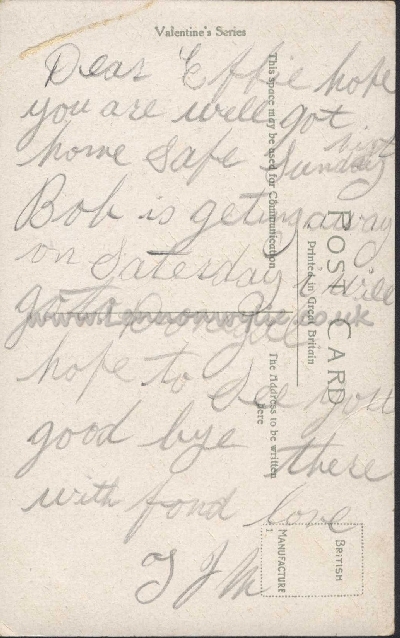 Valentine's Series
Dear Effie hope
you are well got
home safe Sunday
night
Bob is geting away
on Satesday I will
go to
hope to see you
good bye there
with fond love
T J M
This space may be used for Communication
The Address to be written
here
POST CARD
Printed in Great Britain
BRITISH
MANUFACTURE